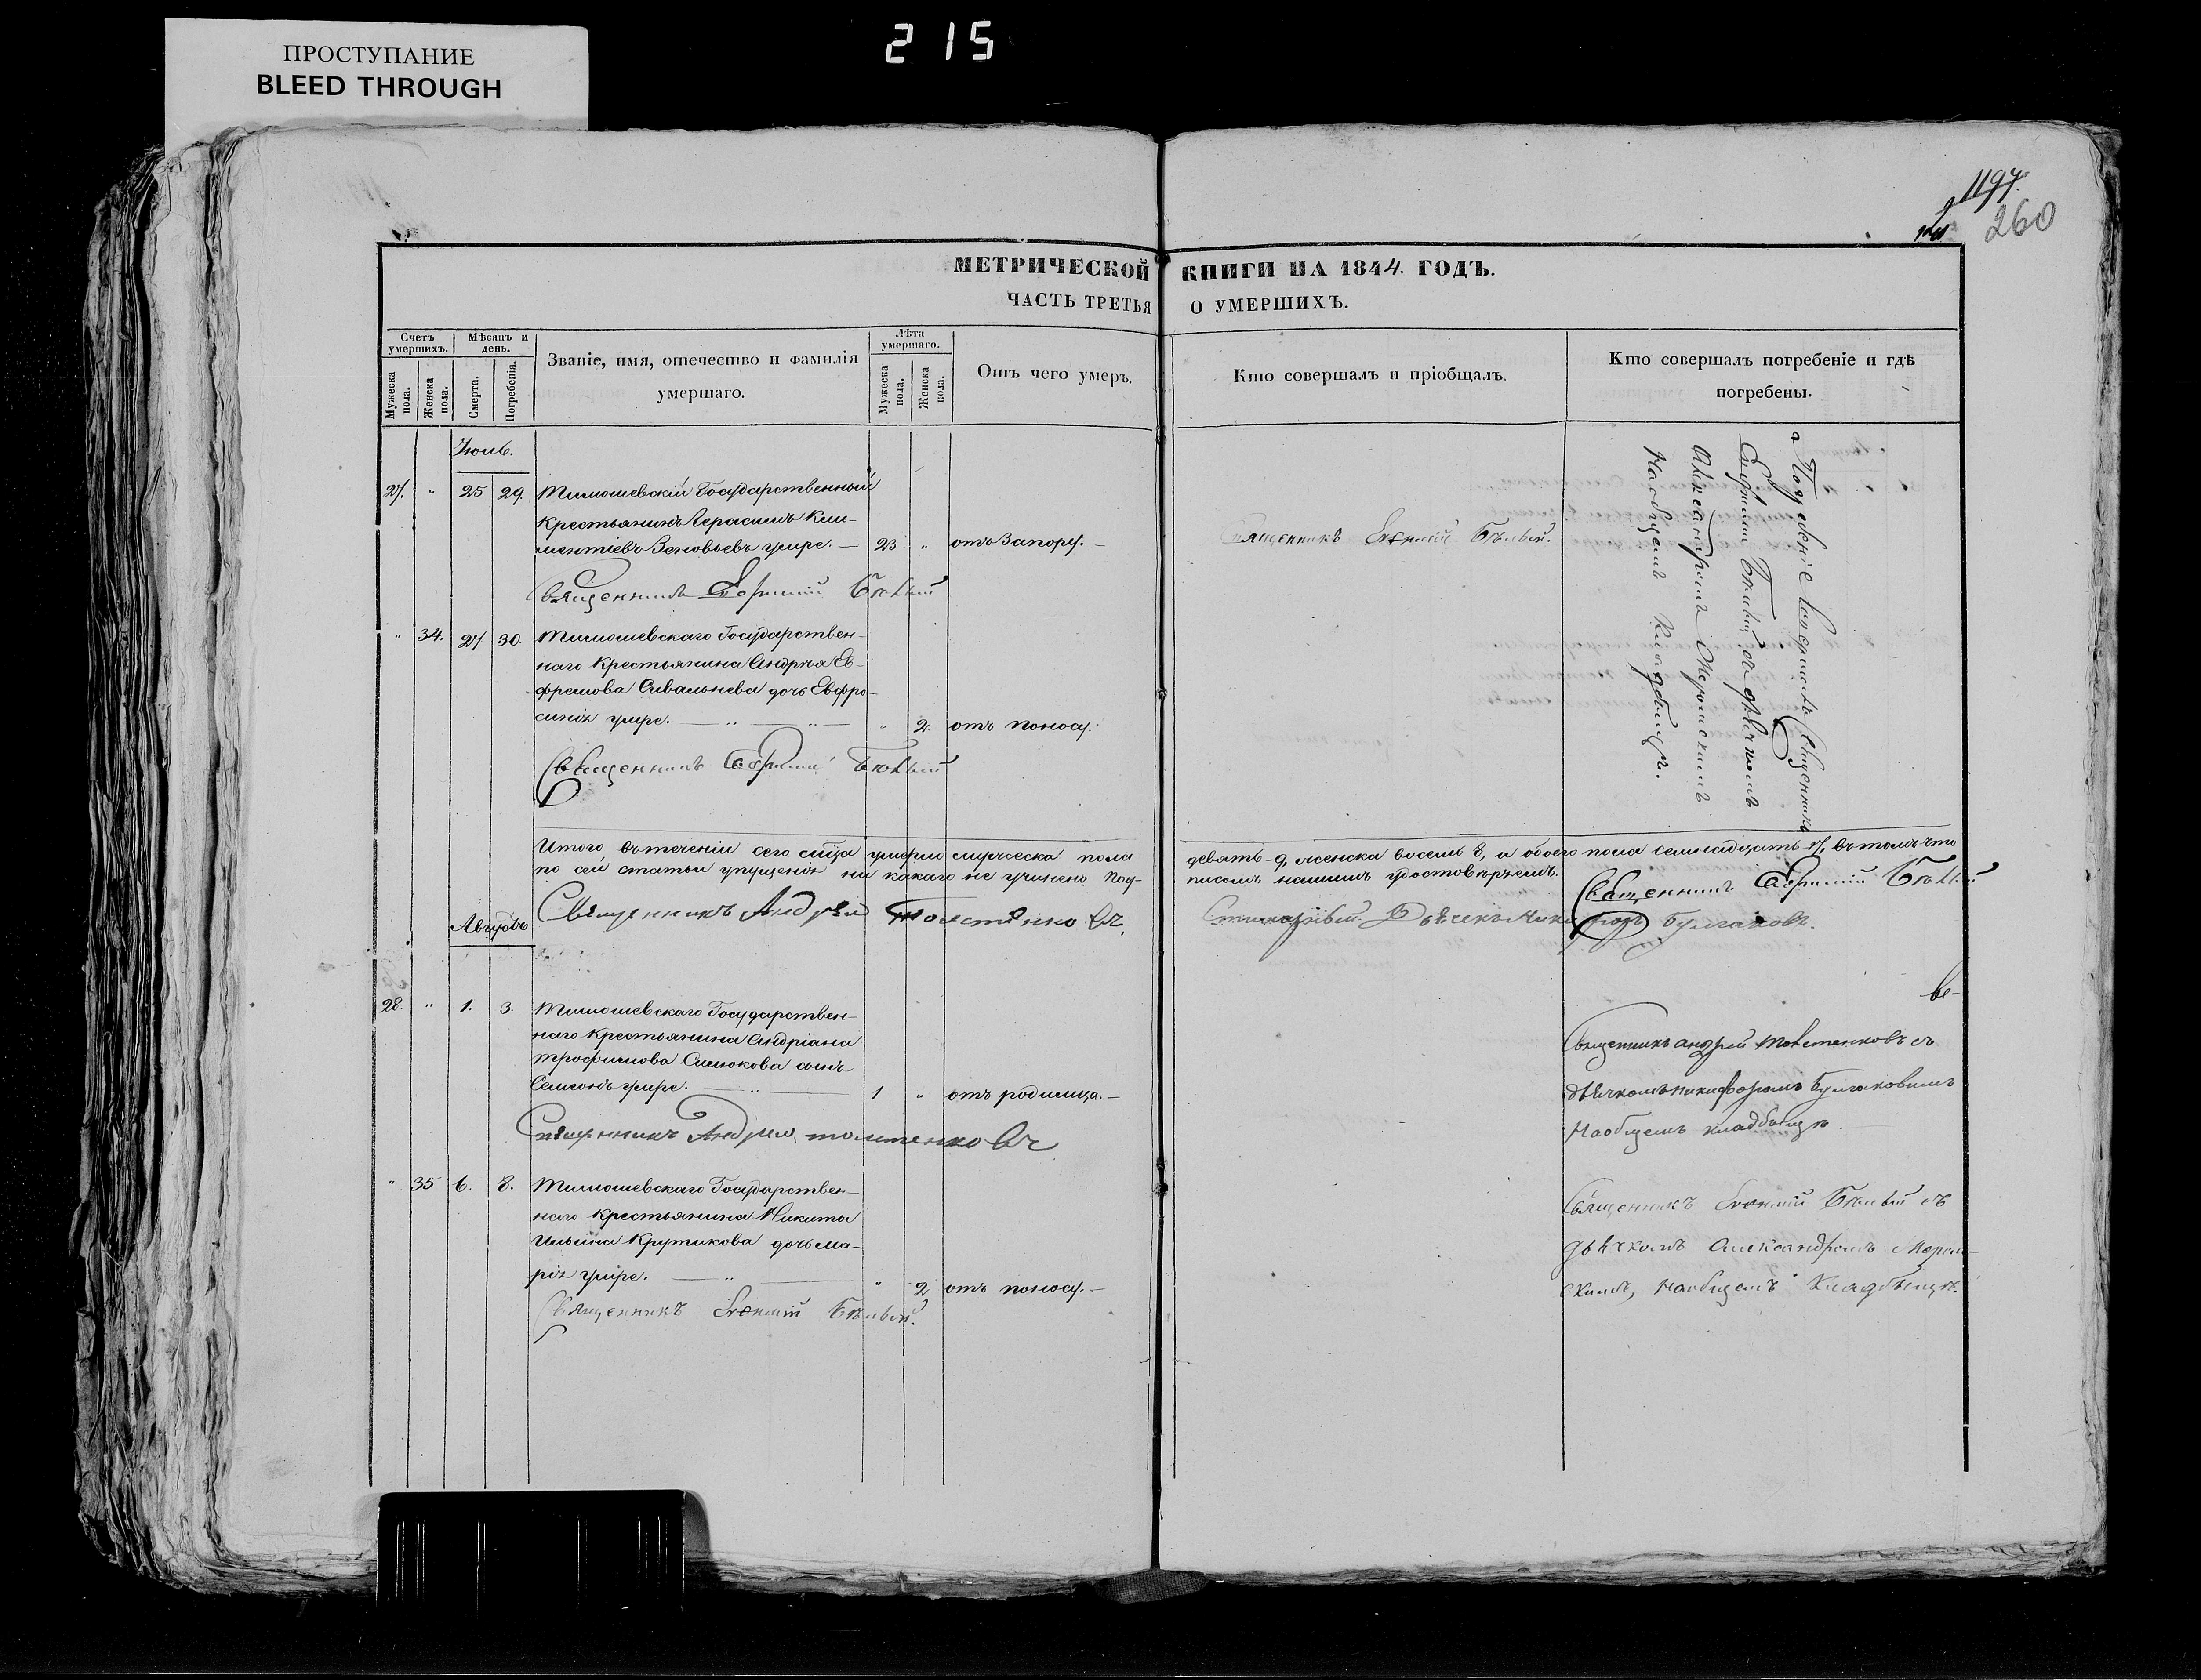 ПРОСТУПАНИЕ
BLEED THROUGH
215
1197.
260
МЕТРИЧЕСКОЙ КНИГИ НА 1844. ГОДЪ.
ЧАСТЬ ТРЕТЬЯ О УМЕРШИХЪ.
Счетъ умершихъ.
Мужеска пола.
Женска пола.
Мѣсяцъ и день.
Смерти.
Погребенія.
Званіе, имя, отечество и фамилія
умершаго.
Лѣта умершаго.
Мужеска пола.
Женска пола.
Отъ чего умеръ.
Кто совершалъ и пріобщалъ.
Кто совершалъ погребеніе и гдѣ
погребены.
Іюль.
27. " 25 29. Тимошевскій Государственный
Крестьянинъ Герасимъ Кли-
ментіевъ Зеновьевъ умре. — 23 " отъ Запору. — Священникъ Евѳимій Бѣлый.
Священникъ Евфимій Бѣлый
" 34. 27 30. Тимошевскаго Государствен-
наго Крестьянина Андрѣя Ев-
фремова Сивальнева дочь Евфро-
синія умре. — " — " — " 2. отъ поносу.
Священникъ Евфимій Бѣлый
Погребеніе совершалъ Священникъ
Евфимій Бѣлый съ дьячкомъ
Александромъ
На общемъ Кладбищѣ.
Итого въ теченіи сего мѣсяца умерло мужеска пола девять 9, женска восемь 8, а обоего пола семнадцать 17, въ томъ что
по сей статьи упущенія ни какаго не учинено Под- писомъ нашимъ удостовѣряемъ. Священникъ Евфимій Бѣлый
Священникъ Андрей Толстенковъ. Стихарный Дьячекъ Никифоръ Булгаковъ.
Августъ
28. " 1. 3. Тимошевскаго Государствен-
наго Крестьянина Андріана
Трофимова Симокова сынъ
Семеонъ умре. — " — 1 " отъ родимца. —
Священникъ Андрей Толстенковъ съ
дьячкомъ Никифоромъ Булгаковымъ
На общемъ кладбищѣ.
Священникъ Андрей Толстенковъ
" 35 6. 8. Тимошевскаго Государствен-
наго Крестьянина Никиты
Ильина Крутикова дочь Ма-
рія умре. — " — " 2 отъ поносу. —
Священникъ Евѳимій Бѣлый съ
дьячкомъ Александромъ
скимъ, на общемъ Кладбищѣ.
Священникъ Евѳимій Бѣлый.